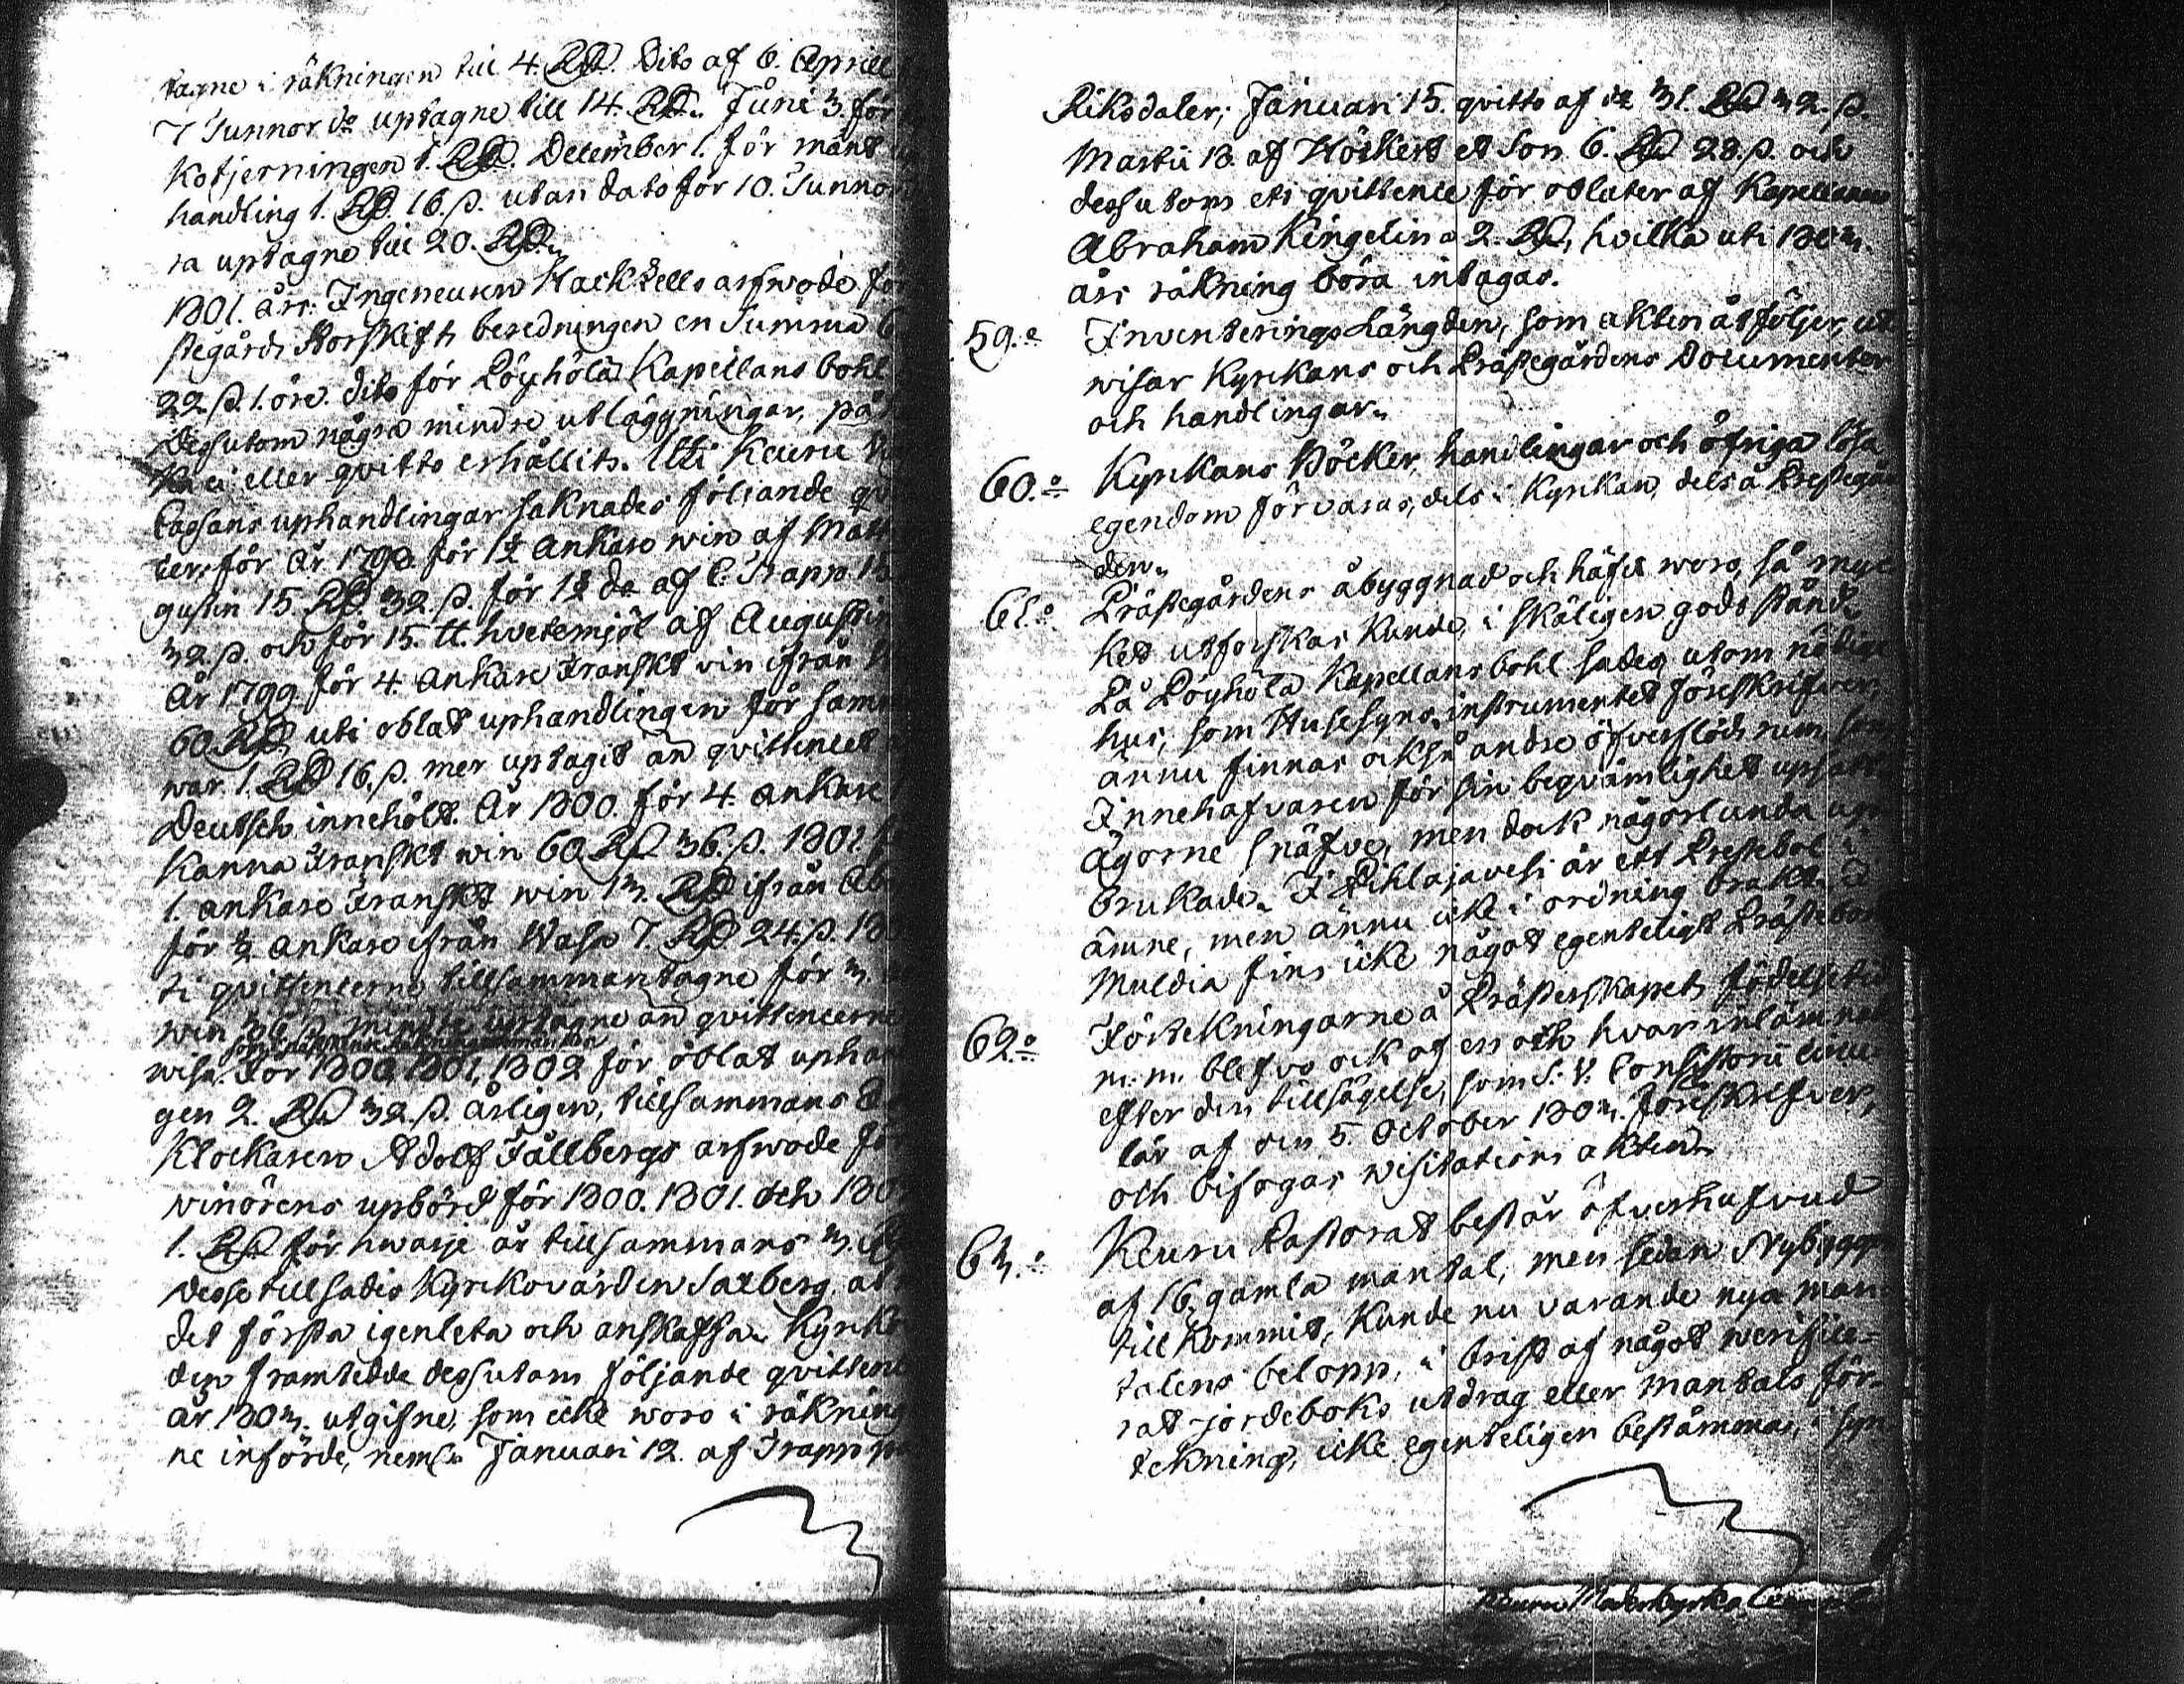 tagne i räkningen till 4. RD. Dito af 6. Aprill
7 Tunnor do uptagne till 14. RD. Juni 3. för
kotjerningen 1. RD. December 1. för mant
handling 1. RD. 16. ß. utan dato för 10. Tunnor
ra uptagne till 20. RD.
1801. års: Ingeneuren Hackzells arfwode för
stegårds Storskifts beredningen en Summa
22 ß. 1. öre. dito för Löyhölä Kapellans bohl
Dessutom några mindre utläggningar, på
ka ei eller qvitto erhållits. Uti Keuru
Cassans uphandlingar saknades följande
cer: för År 1798 för 1½ Ankare win af Matt
gustin 15 RD. 32. ß. för 1½ do af C. Trapp 15
32. ß. och för 15. ℔. hvetemjöl af Augustin
År 1799 för 4. Ankare Franskt vin ifrån
60. RD uti oblat uphandlingen för samm
war 1. RD 16. ß. mer uptagit än qvittencet
Deutsch innehölt. År 1800. för 4. ankare
Kanna Franskt win 60 RD 36. ß. 1801.
1. ankare Franskt win 13. RD ifrån Åb
för ½ ankare ifrån Wasa 7. RD 24. ß. 18
ti qvittencerne tillsammantagne för 3.
win 36 ß. mindre uptagne än qvittencerne
wisa. För 1800, 1801, 1802 för oblat uphan
gen 2. RD 32 ß. årligen, tillsammans 8
Klockaren Adolf Fällbergs arfwode för
winörens upbörd för 1800. 1801. och 180
1. RD för hwarje år tillsammans 3. RD
Desse tillsades Kyrkovärden Saxberg. at
det första igenleta och anskaffa. Kyrko
den framtedde dessutom följande qvittenc
år 1803. utgifne, som icke woro i räkning
ne införde, neml. Januari 12. af Trapp
Riksdaler; Januari 15. qvitto af 31. RD 32. ß.
Martii 18. af Höckert et Son 6. RD 28. ß. och
dessutom ett qvittence för oblater af Kapellanen
Abraham Kingelin a 2. RD, hvilka uti 1803.
års räkning böra intagas.
59.o Inventerings Längden, som akten åtföljer, ut
wisar Kyrkans och Prästegårdens Documenter
och handlingar.
60.o Kyrkans Böcker, handlingar och öfriga lösa
egendom förvaras, dels i Kyrkan, dels å Prestegår
den.
61.o Prästegårdens åbyggnad och häfd woro, så myc
ket utforskas kunde, i skäligen godt stånd.
På Löyhölä Kapellans bohl sades utom nödige
hus, som Husesyns instrumentet föreskrifwer,
ännu finnas också andre öfverflöds rum, som
Innehafvaren för sin beqvämlighet upsatt.
Ägorne snäfve, men dock någorlunda up
brukade. I Pihlajavesi är ett Prestebol i
ämne, men ännu icke i ordning bragt. I
Muldia fins icke något egenteligt Prästebol
62.o Förtekningarne å Prästerskapets födelsetid
m. m. blefvo ock af en och hvar inlämnad
efter den tillsägelse, som S. V. Consistorii Circu
lär af den 5. October 1803. föreskrifver,
och bifogas wisitations akten.
63.o Keuru Pastorat består öfverhufvud
af 16. gamla mantal; men sedan Nybygge
tillkommit, kunde nu varande nya man
talens belopp, i brist af något werifice=
rat jordeboks utdrag eller mantals för=
tekning, icke egenteligen bestämmas, i syn
Keuru Moderkyrko